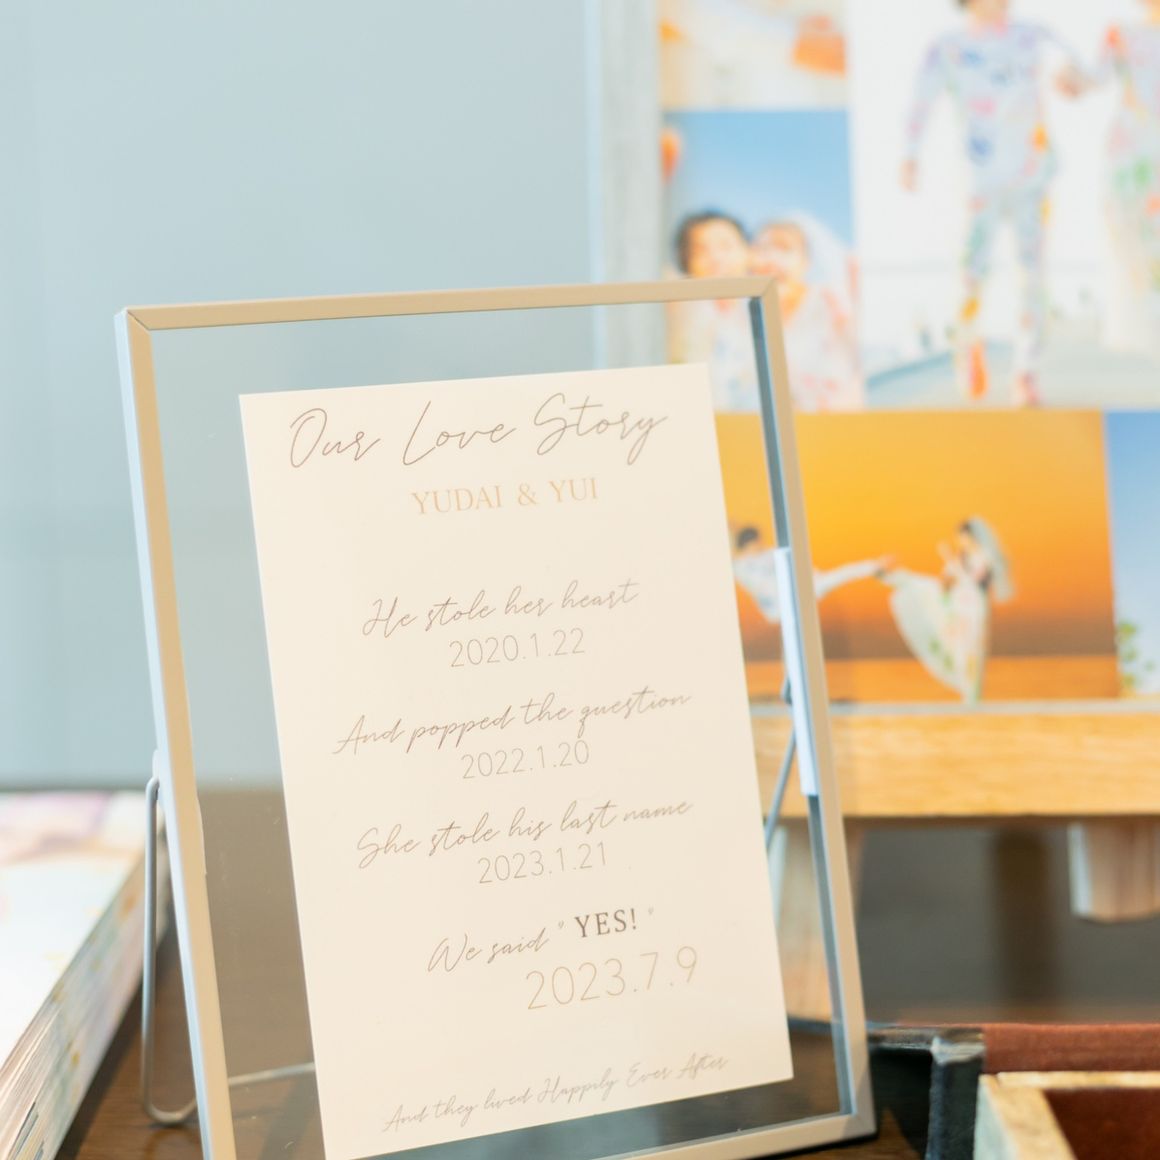 Our Love Story
YUDAI & YUI
He stole her heart
2020.1.22
And popped the question
2022.1.20
She stole his last name
2023.1.21
We said " YES! "
2023.7.9
And they lived Happily Ever After